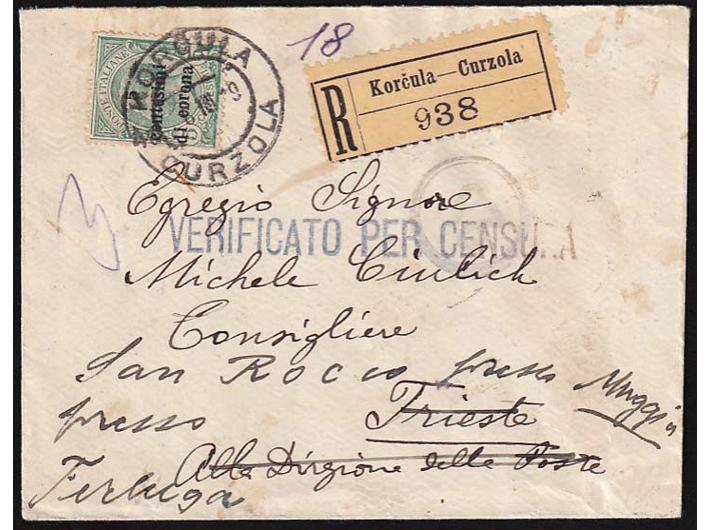 18
POSTE ITALIANE
centesimi
di corona
KORČULA
CURZOLA
R
Korčula — Curzola
938
Egregio Signore
VERIFICATO PER CENSURA
Michele
Consigliere
San Rocco presso Muggia
presso Trieste
Alla Dirgione delle Poste
Ferluga